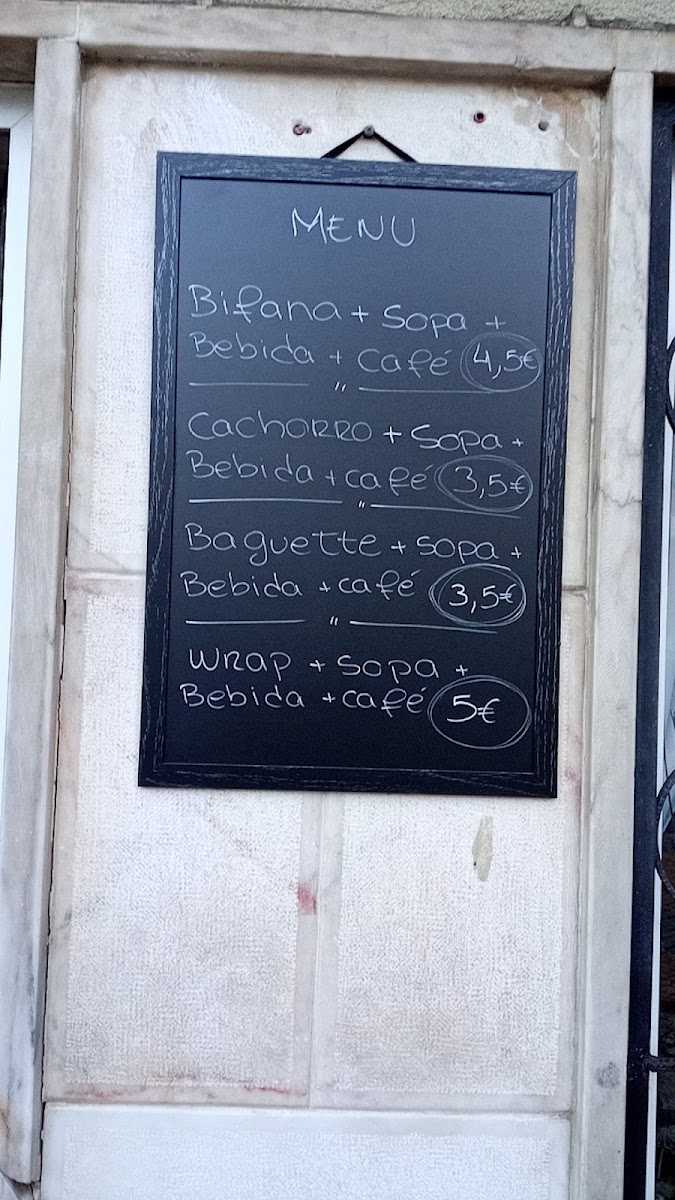 MENU
Bifana + Sopa +
Bebida + café 4,5€
"
CachoRRo + Sopa +
Bebida + café 3,5€
"
Baguette + sopa +
Bebida + café 3,5€
"
WRap + sopa +
Bebida + café 5€